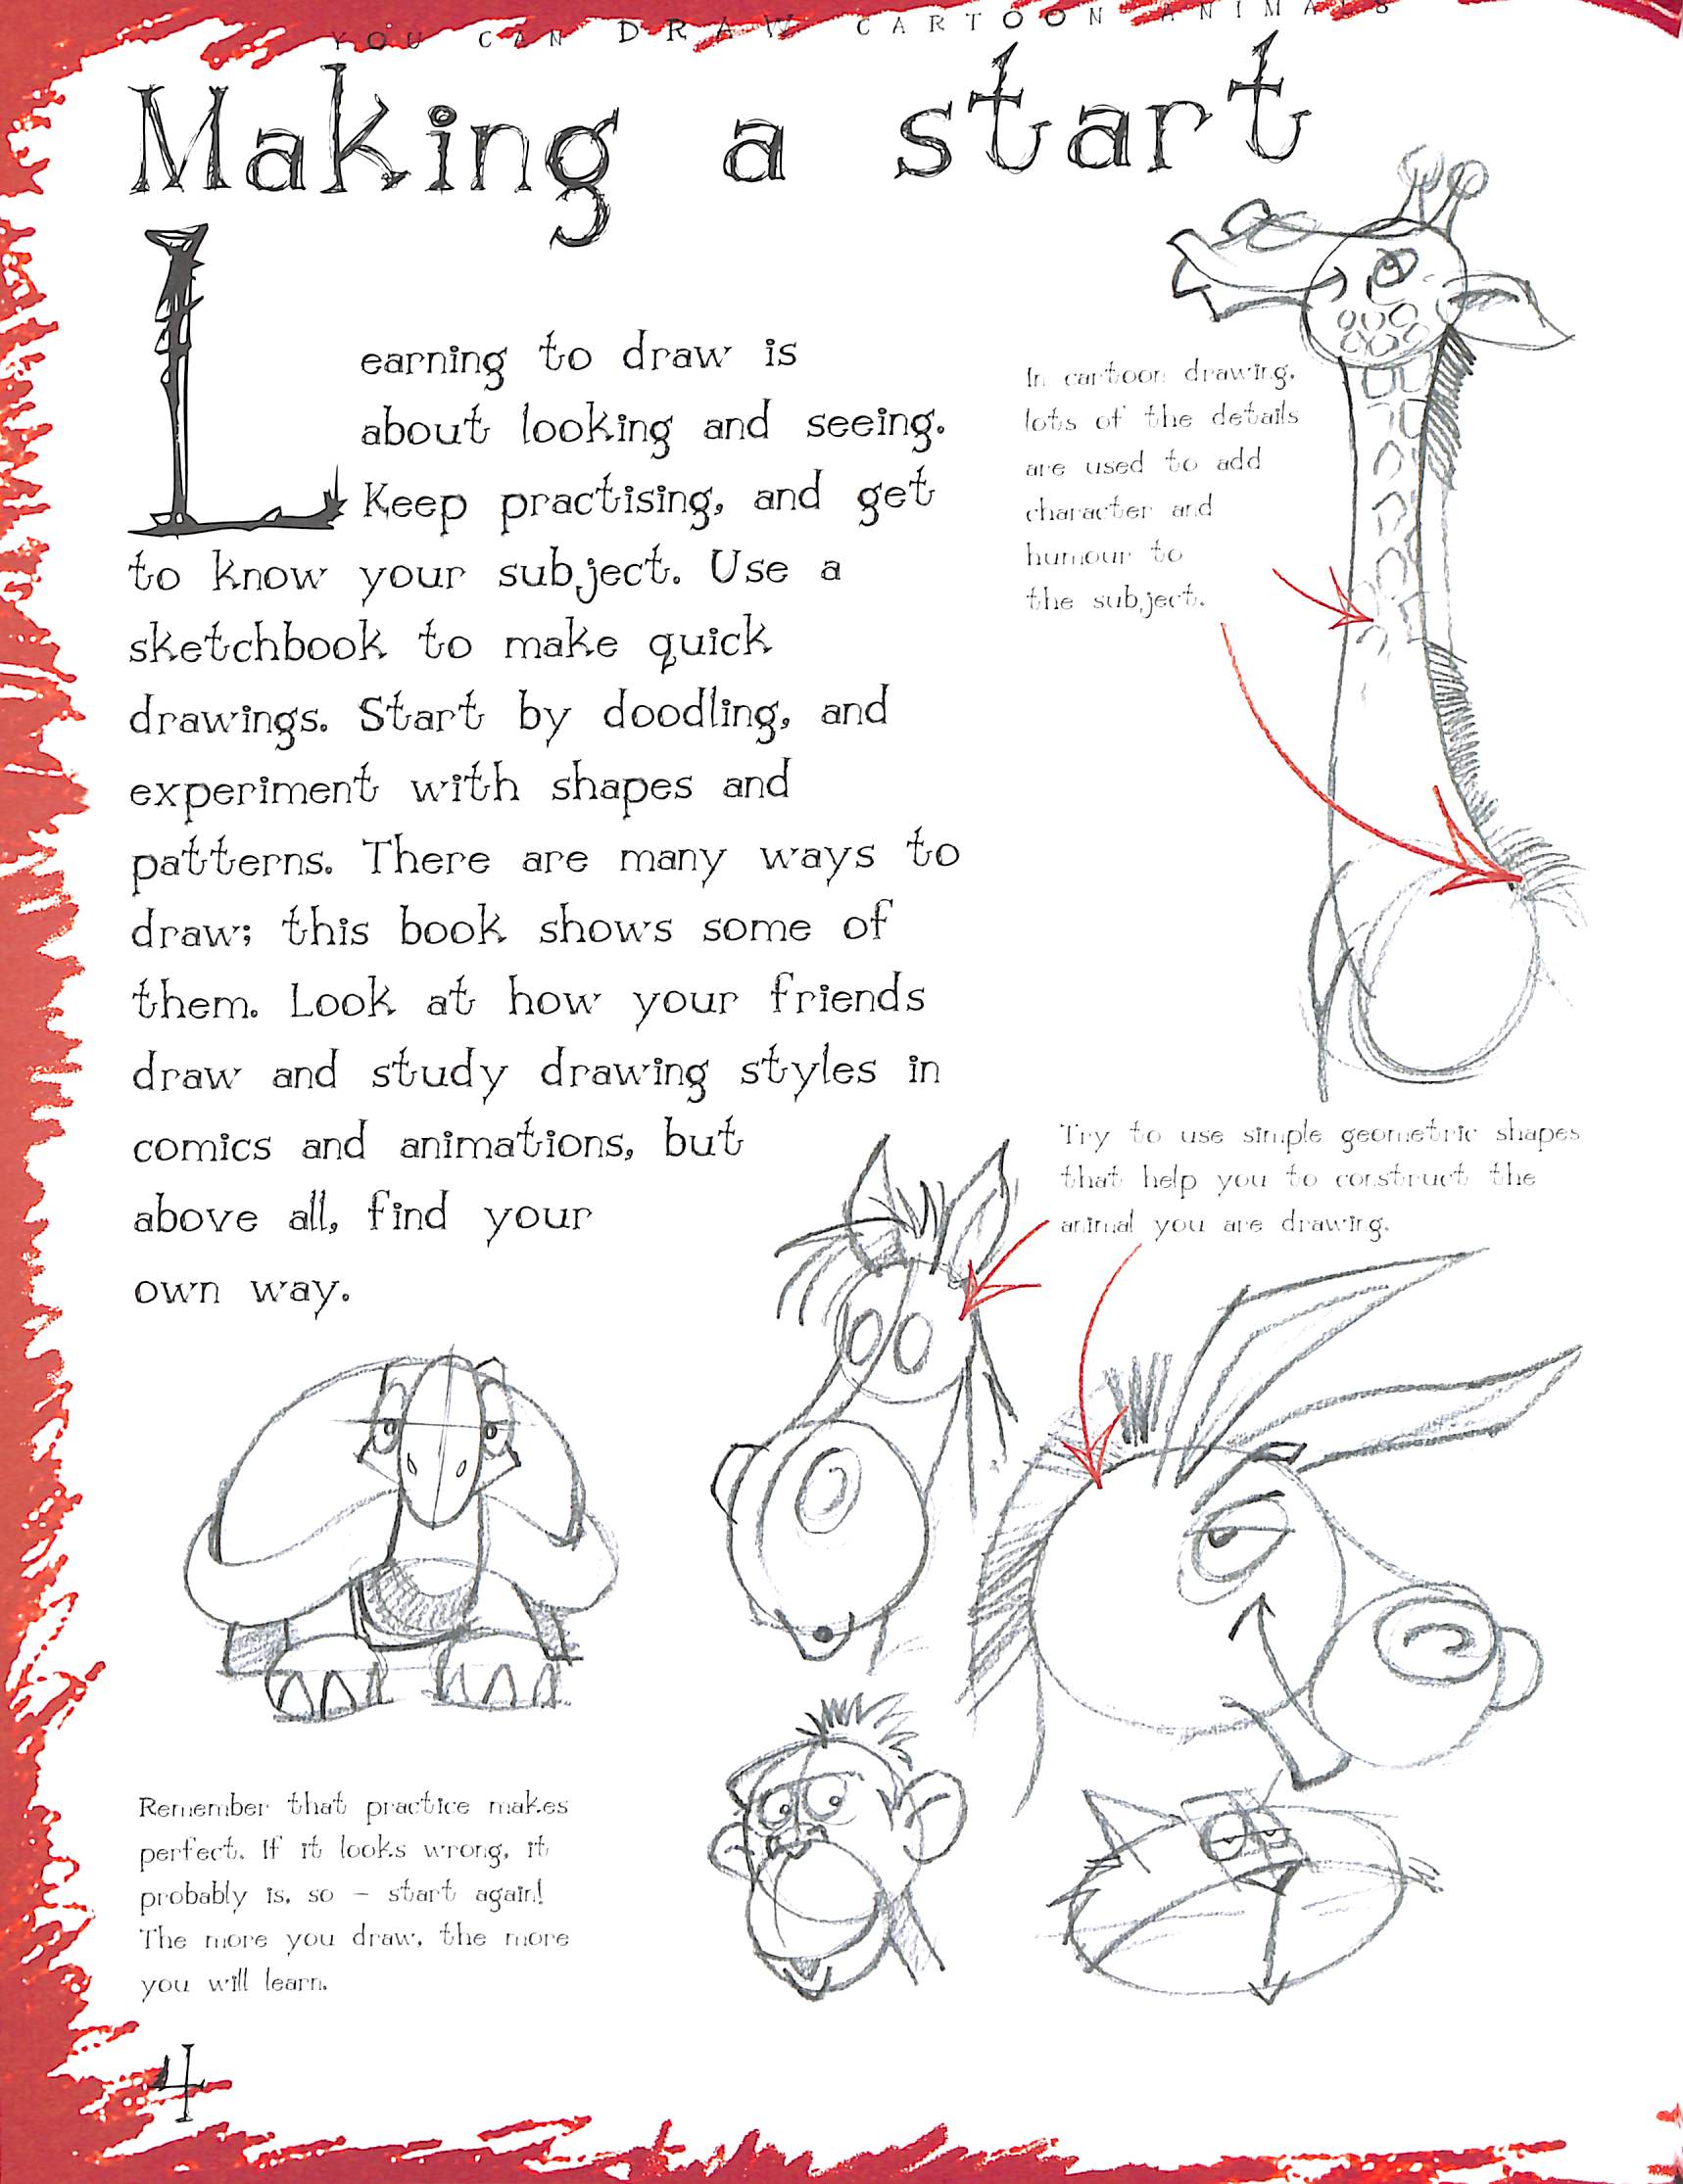 YOU CAN DRAW CARTOON ANIMALS
Making a start
Learning to draw is
about looking and seeing.
Keep practising, and get
to know your subject. Use a
sketchbook to make quick
drawings. Start by doodling, and
experiment with shapes and
patterns. There are many ways to
draw; this book shows some of
them. Look at how your friends
draw and study drawing styles in
comics and animations, but
above all, find your
own way.
In cartoon drawing,
lots of the details
are used to add
character and
humour to
the subject.
Try to use simple geometric shapes
that help you to construct the
animal you are drawing.
Remember that practice makes
perfect. If it looks wrong, it
probably is, so – start again!
The more you draw, the more
you will learn.
4